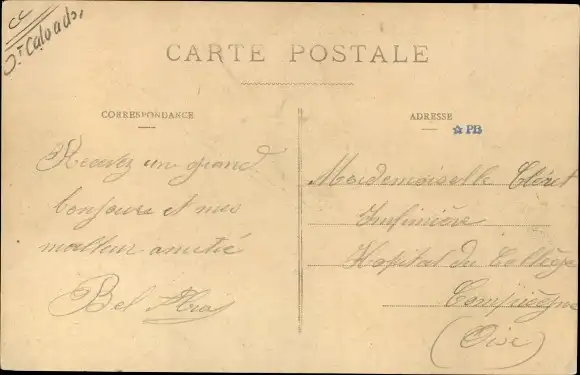 CC
Dt Calvados
CARTE POSTALE
CORRESPONDANCE
ADRESSE
PB
Recevez un grand
bonjour et mes
meilleur amitié
Bel
Mademoiselle Cléret
Infirmière
Hopital du Collège
Compiègne
(Oise)